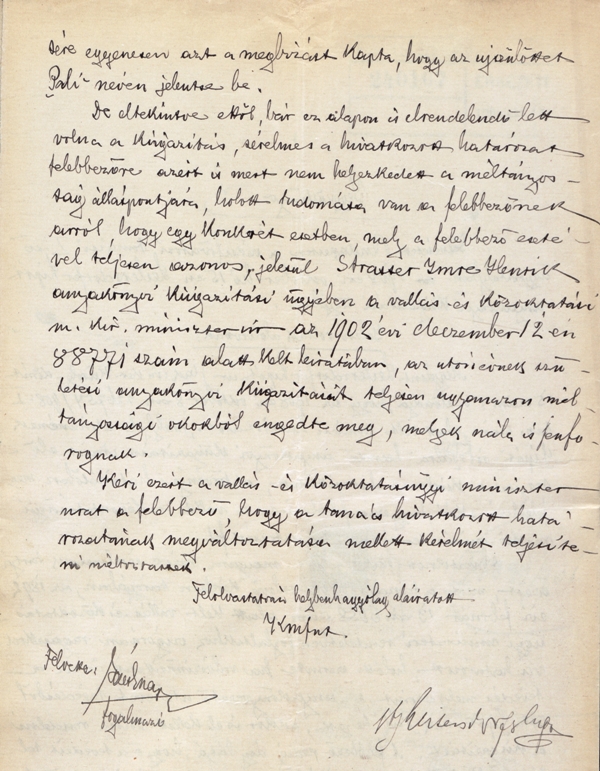 sére egyenesen azt a megbizást kapta, hogy az ujszülöttet
"Pál" néven jelentse be.
De eltekintve ettől, bár ez alapon is elrendelendő lett
volna a kiigazitás, sérelmes a hivatkozott határozat
felebbezőre azért is mert nem helyezkedett a méltányos-
ság álláspontjára, holott tudomása van a felebbezőnek
arról, hogy egy konkrét esetben, mely a felebbező eseté-
vel teljesen azonos, jelesül Strasser Imre Henrik
anyakönyvi kiigazitási ügyében a vallás-és közoktatási
m. kir. miniszter úr az 1902 évi deczember 12-en
88771 szám alatt kelt leiratában, az utónévnek szü-
letési anyakönyvi kiigazitását teljesen ugyanazon mél-
tányossági okokból engedte meg, melyek nála is fenfo-
rognak.
Kéri ezért a vallás-és közoktatásügyi miniszter
urat a felebbező, hogy a tanács hivatkozott hatá-
rozatának megváltoztatása mellett kérelmét teljesite-
ni méltóztassék.
Felolvastatván helybenhagyólag aláiratott
Kmft.
Felvette:
fogalmazó